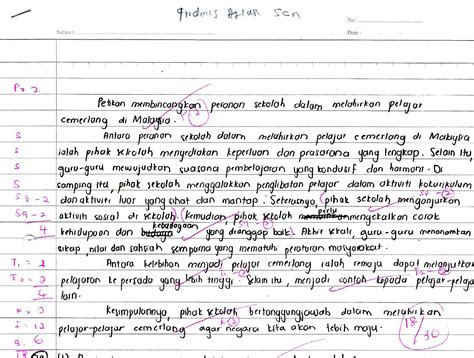 No :
Subject :
Date :
P = 2
Petikan membincangkan peranan sekolah dalam melahirkan pelajar
cemerlang di Malaysia.
Antara peranan sekolah dalam melahirkan pelajar cemerlang di Malaysia
ialah pihak sekolah menyediakan keperluan dan prasarana yang lengkap. Selain itu,
guru-guru mewujudkan suasana pembelajaran yang kondusif dan harmoni. Di
samping itu, pihak sekolah menggalakkan penglibatan pelajar dalam aktiviti kokurikulum
dan aktiviti luar yang sihat dan mantap. Seterusnya, pihak sekolah menganjurkan
aktiviti sosial di sekolah. Kemudian, pihak sekolah perlu mengekalkan corak
kehidupan dan kebudayaan yang dianggap baik. Akhir sekali, guru-guru menanamkan
sikap, nilai dan sahsiah sempurna yang mematuhi peraturan masyarakat.
Antara kelebihan menjadi pelajar cemerlang ialah remaja dapat melanjutkan
pelajaran ke persada yang lebih tinggi. Selain itu, menjadi contoh kepada pelajar-pelajar
lain.
Kesimpulannya, pihak sekolah bertanggungjawab dalam melahirkan
pelajar-pelajar cemerlang agar negara kita akan lebih maju.
18
30